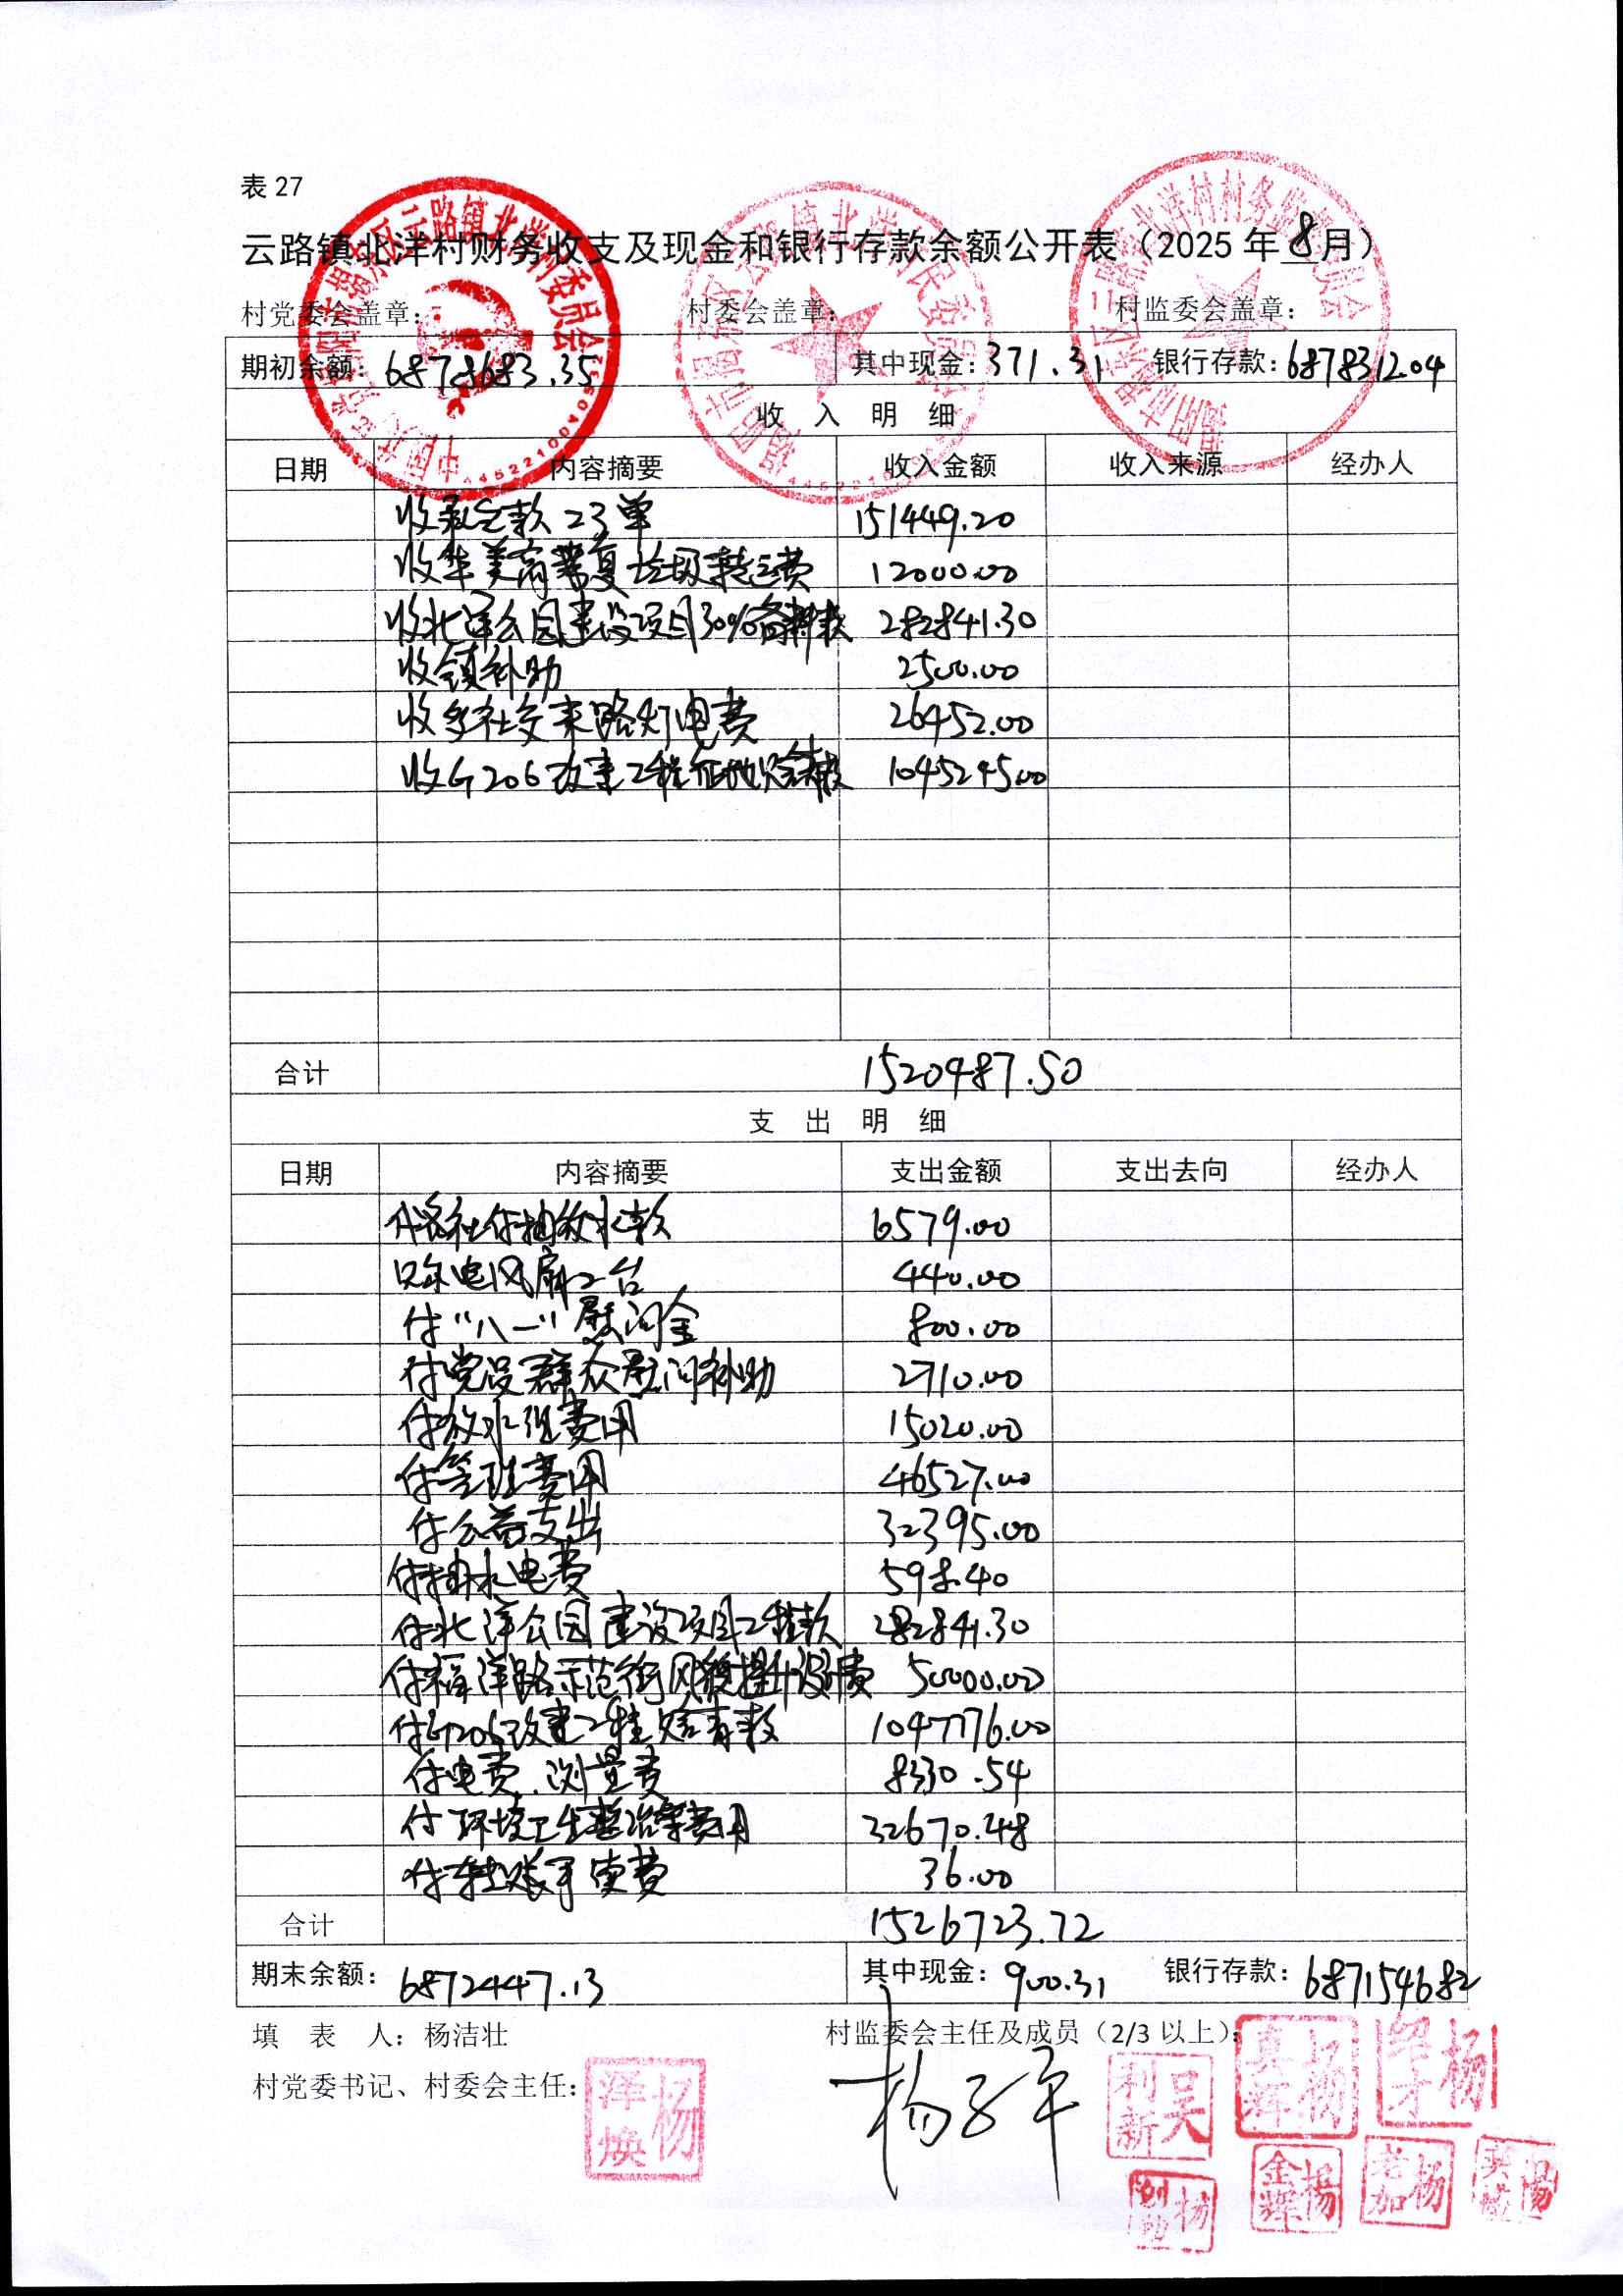 表 27
云路镇北洋村财务收支及现金和银行存款余额公开表（2025 年 8 月）
村党委会盖章： 村委会盖章： 村监委会盖章：
期初余额：6878683.35 其中现金：371.31 银行存款：6878312.04
收 入 明 细
日期 内容摘要 收入金额 收入来源 经办人
收承包款 23单 151449.20
收华美 垃圾转运费 12000.00
收北洋公园建设项目30%备料款 282841.30
收镇补助 2500.00
收各社交来路灯电费 26452.00
收G206改建工程征地赔青款 1045245.00
合计 1520487.50
支 出 明 细
日期 内容摘要 支出金额 支出去向 经办人
付各社付抽放水款 6579.00
电风扇2台 440.00
付“八一”慰问金 800.00
付党员群众慰问补助 2710.00
付放水组费用 15020.00
付管理费用 46527.00
付公益支出 32395.00
付抽水电费 598.40
付北洋公园建设项目工程款 282841.30
付福洋路示范街风貌提升设计费 50000.00
付G206改建工程赔青款 1047776.00
付电费、测量费 8330.54
付环境卫生整治等费用 32670.48
付转账手续费 36.00
合计 1526723.72
期末余额：6872447.13 其中现金：900.31 银行存款：6871546.82
填 表 人：杨洁壮 村监委会主任及成员（2/3 以上）：
村党委书记、村委会主任：
杨泽焕
吴利新
杨真辉
杨绍才
杨金辉